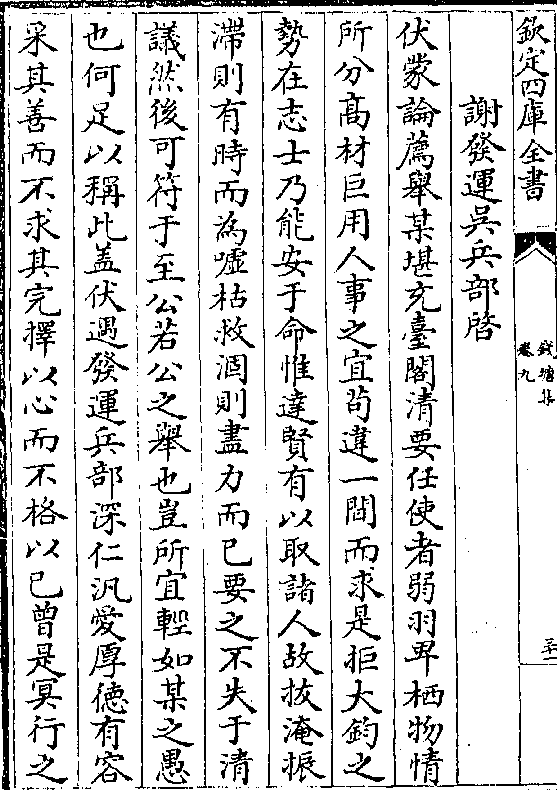 欽定四庫全書
錢塘集
卷九
謝發運吳兵部啓
伏蒙論薦舉某堪充臺閣清要任使者弱羽卑栖物情
所分高材巨用人事之宜苟違一閧而求是拒大鈞之
勢在志士乃能安于命惟達賢有以取諸人故拔淹振
滯則有時而為噓枯救涸則盡力而已要之不失于清
議然後可符于至公若公之舉也豈所宜輕如某之愚
也何足以稱此盖伏遇發運兵部深仁汎愛厚德有容
采其善而不求其完擇以心而不格以已曾是冥行之